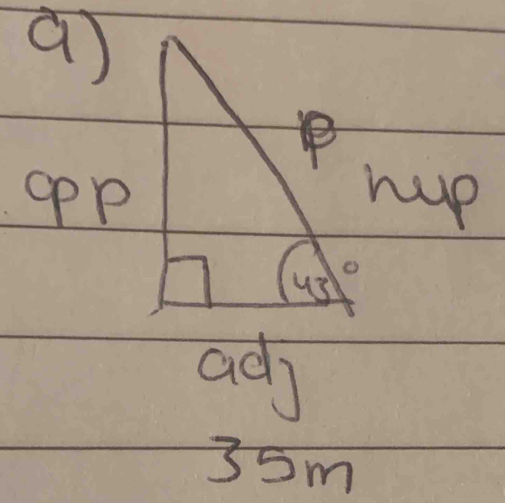 a)
p
opp
hyp
43°
adj
35m